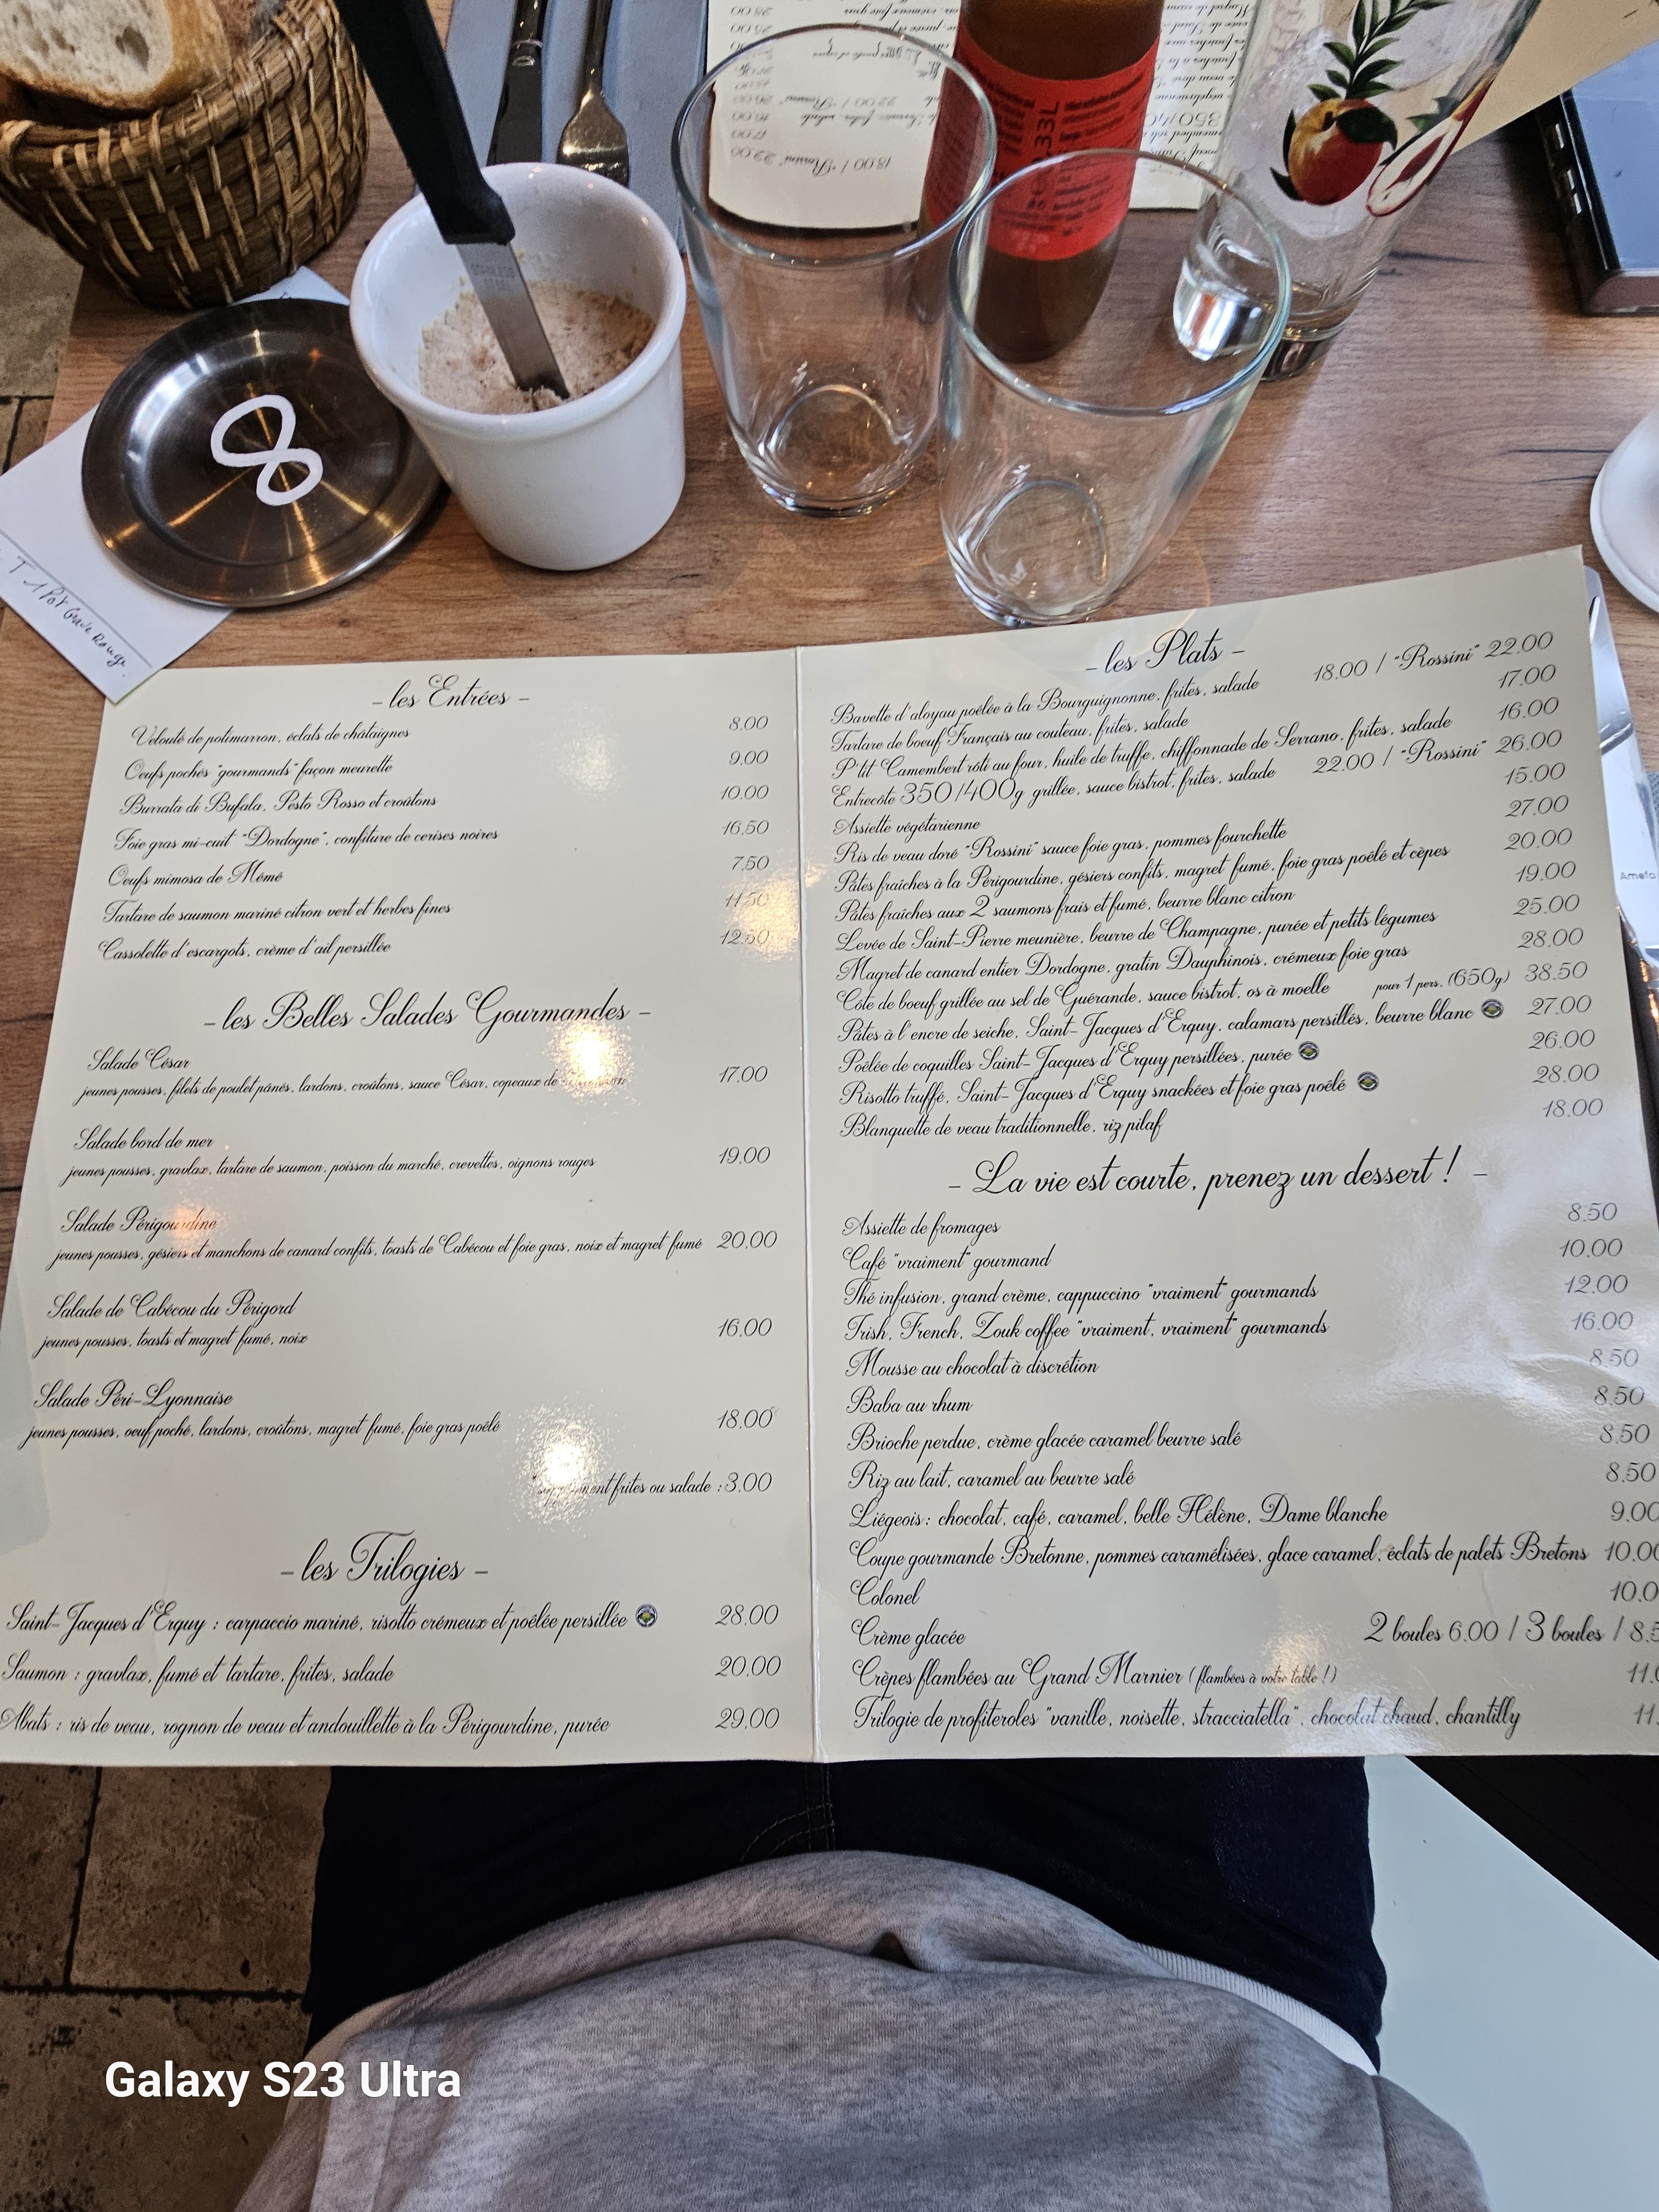 STAINLESS
STEEL
33L
8
T 1 Pot Grave Rouge
- les Entrées -
Velouté de potimarron, éclats de châtaignes 8.00
Oeufs pochés "gourmands" façon meurette 9.00
Burrata di Bufala, Pesto Rosso et croûtons 10.00
Foie gras mi-cuit "Dordogne", confiture de cerises noires 16.50
Oeufs mimosa de Mémé 7.50
Tartare de saumon mariné citron vert et herbes fines 11.50
Cassolette d'escargots, crème d'ail persillée 12.50
- les Belles Salades Gourmandes -
Salade César
jeunes pousses, filets de poulet pânés, lardons, croûtons, sauce César, copeaux de 17.00
Salade bord de mer
jeunes pousses, gravlax, tartare de saumon, poisson du marché, crevettes, oignons rouges 19.00
Salade Périgourdine
jeunes pousses, gésiers et manchons de canard confits, toasts de Cabécou et foie gras, noix et magret fumé 20.00
Salade de Cabécou du Périgord
jeunes pousses, toasts et magret fumé, noix 16.00
Salade Péri-Lyonnaise
jeunes pousses, oeuf poché, lardons, croûtons, magret fumé, foie gras poêlé 18.00
frites ou salade : 3.00
- les Trilogies -
Saint-Jacques d'Erquy : carpaccio mariné, risotto crémeux et poêlée persillée 28.00
Saumon : gravlax, fumé et tartare, frites, salade 20.00
Abats : ris de veau, rognon de veau et andouillette à la Périgourdine, purée 29.00
- les Plats -
Bavette d'aloyau poêlée à la Bourguignonne, frites, salade 18.00 / "Rossini" 22.00
Tartare de boeuf Français au couteau, frites, salade 17.00
P'tit Camembert rôti au four, huile de truffe, chiffonnade de Serrano, frites, salade 16.00
Entrecôte 350/400g grillée, sauce bistrot, frites, salade 22.00 / "Rossini" 26.00
Assiette végétarienne 15.00
Ris de veau doré "Rossini" sauce foie gras, pommes fourchette 27.00
Pâtes fraîches à la Périgourdine, gésiers confits, magret fumé, foie gras poêlé et cèpes 20.00
Pâtes fraîches aux 2 saumons frais et fumé, beurre blanc citron 19.00
Levée de Saint-Pierre meunière, beurre de Champagne, purée et petits légumes 25.00
Magret de canard entier Dordogne, gratin Dauphinois, crémeux foie gras 28.00
Côte de boeuf grillée au sel de Guérande, sauce bistrot, os à moelle pour 1 pers. (650g) 38.50
Pâtes à l'encre de seiche, Saint-Jacques d'Erquy, calamars persillés, beurre blanc 27.00
Poêlée de coquilles Saint-Jacques d'Erquy persillées, purée 26.00
Risotto truffé, Saint-Jacques d'Erquy snackées et foie gras poêlé 28.00
Blanquette de veau traditionnelle, riz pilaf 18.00
- La vie est courte, prenez un dessert ! -
Assiette de fromages 8.50
Café "vraiment" gourmand 10.00
Thé infusion, grand crème, cappuccino "vraiment" gourmands 12.00
Irish, French, Zouk coffee "vraiment, vraiment" gourmands 16.00
Mousse au chocolat à discrétion 8.50
Baba au rhum 8.50
Brioche perdue, crème glacée caramel beurre salé 8.50
Riz au lait, caramel au beurre salé 8.50
Liégeois : chocolat, café, caramel, belle Hélène, Dame blanche 9.00
Coupe gourmande Bretonne, pommes caramélisées, glace caramel, éclats de palets Bretons 10.00
Colonel 10.0
Crème glacée 2 boules 6.00 / 3 boules / 8.5
Crêpes flambées au Grand Marnier (flambées à votre table !) 11.0
Trilogie de profiteroles "vanille, noisette, stracciatella", chocolat chaud, chantilly 11.
Galaxy S23 Ultra